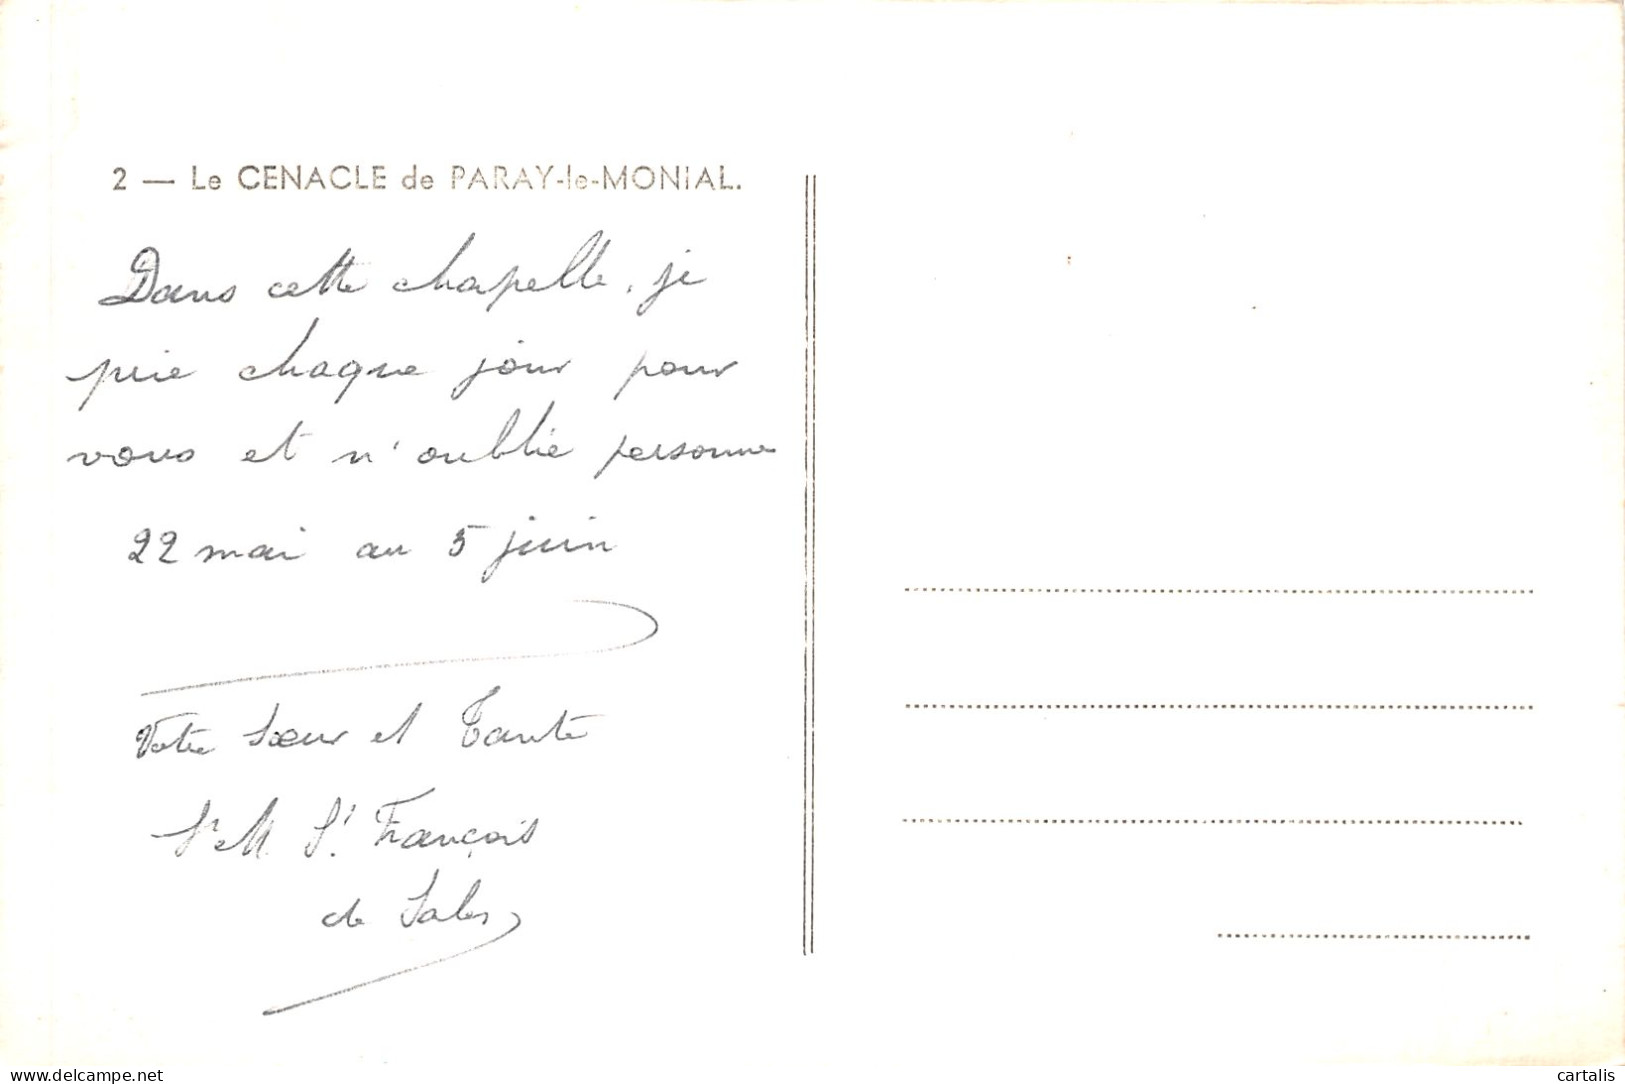 2 — Le CENACLE de PARAY-le-MONIAL.
Dans cette chapelle, je
prie chaque jour pour
vous et n'oublie personne
22 mai au 5 juin
Votre Sœur et Tante
Sr M. St François
de Sales
www.delcampe.net
cartalis